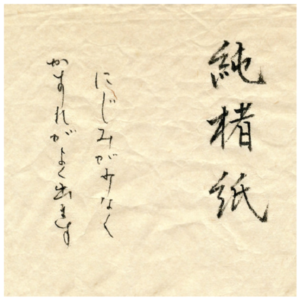 純楮紙
にじみがすくなく
かすれがよく出ます